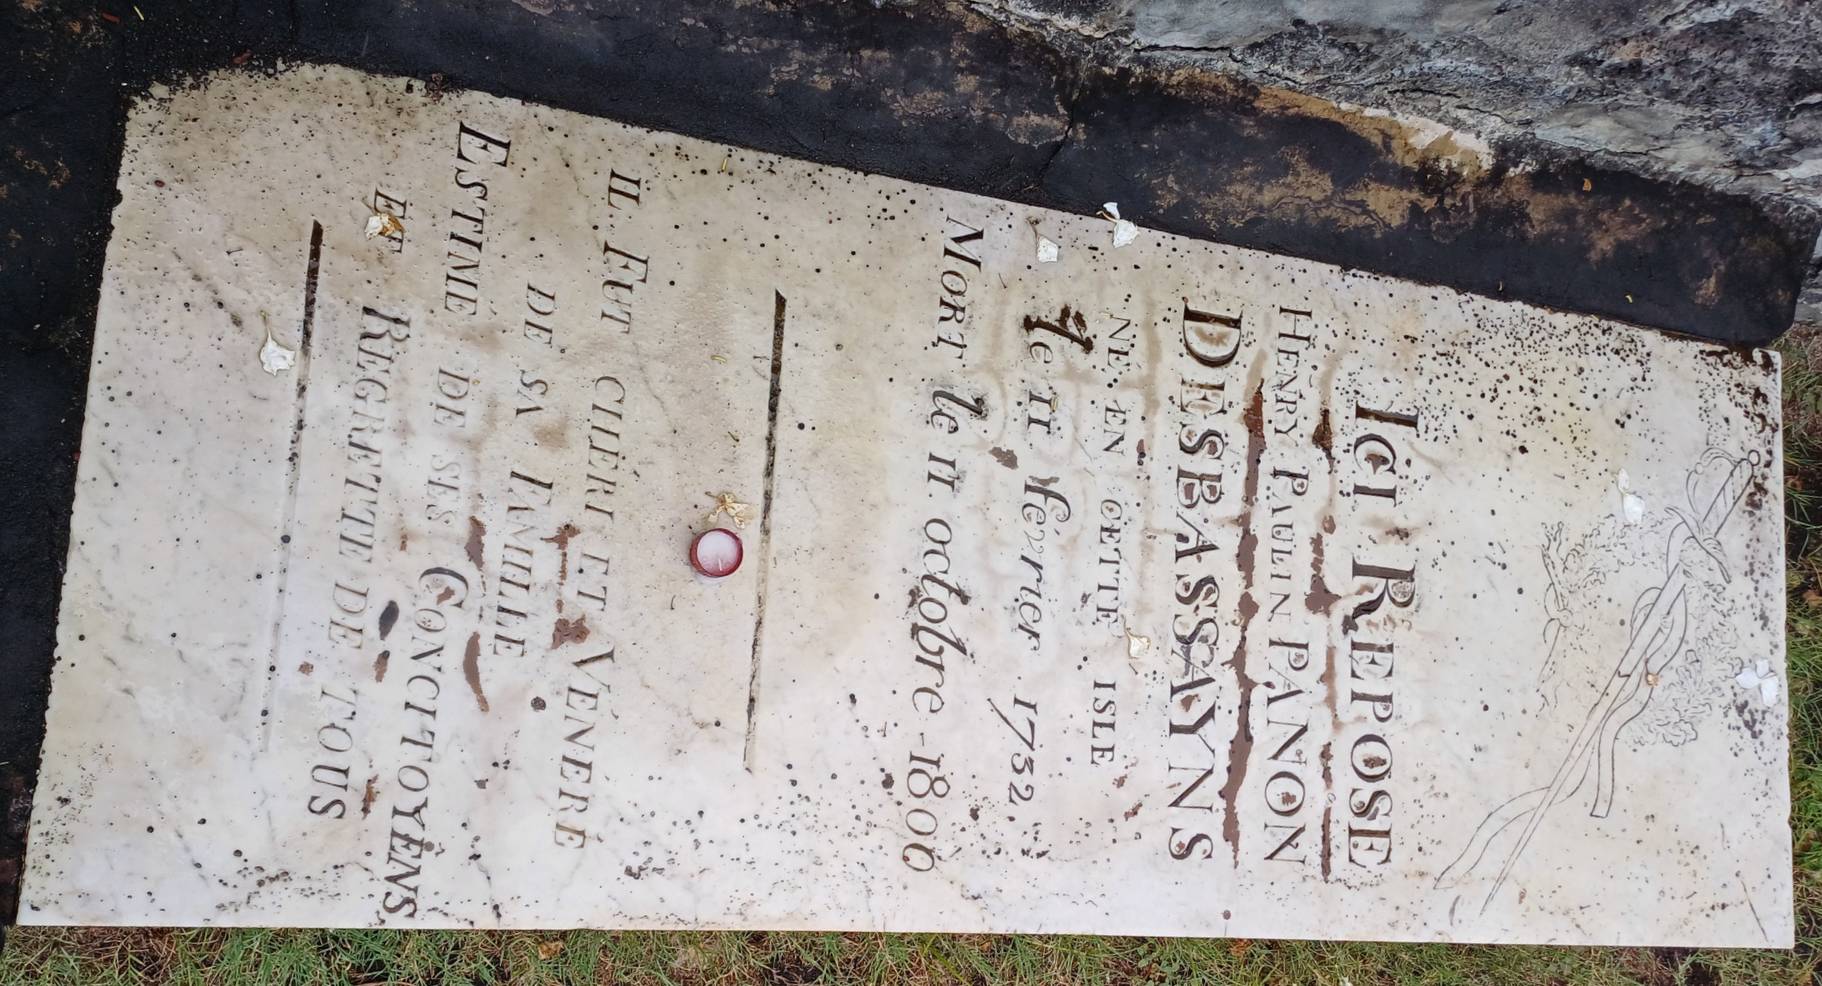 ICI REPOSE
HENRY PAULIN PANON
DESBASSAYNS
NE EN CETTE ISLE
le 11 fevrier 1732,
MORT le 11 octobre - 1800
IL FUT CHERI ET VÉNERÉ
DE SA FAMILLE
ESTIMÉ DE SES CONCITOYENS
ET REGRETTE DE TOUS